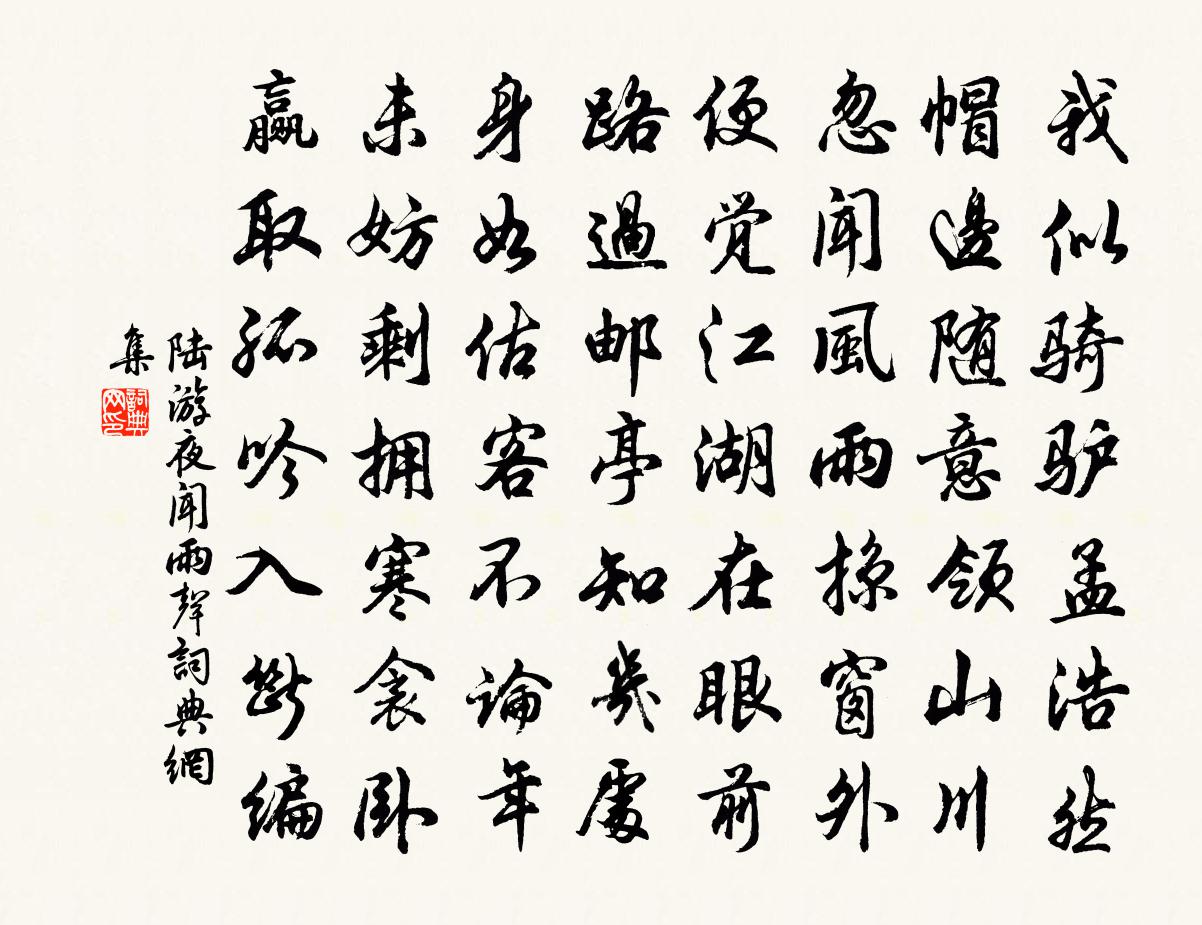 我似骑驴孟浩然
帽邊随意領山川
忽闻風雨掠窗外
便觉江湖在眼前
路過邮亭知幾處
身如估客不論年
未妨剩拥寒衾卧
赢取孤吟入断编
陆游夜闻雨聲詞典網
集
詞典网印